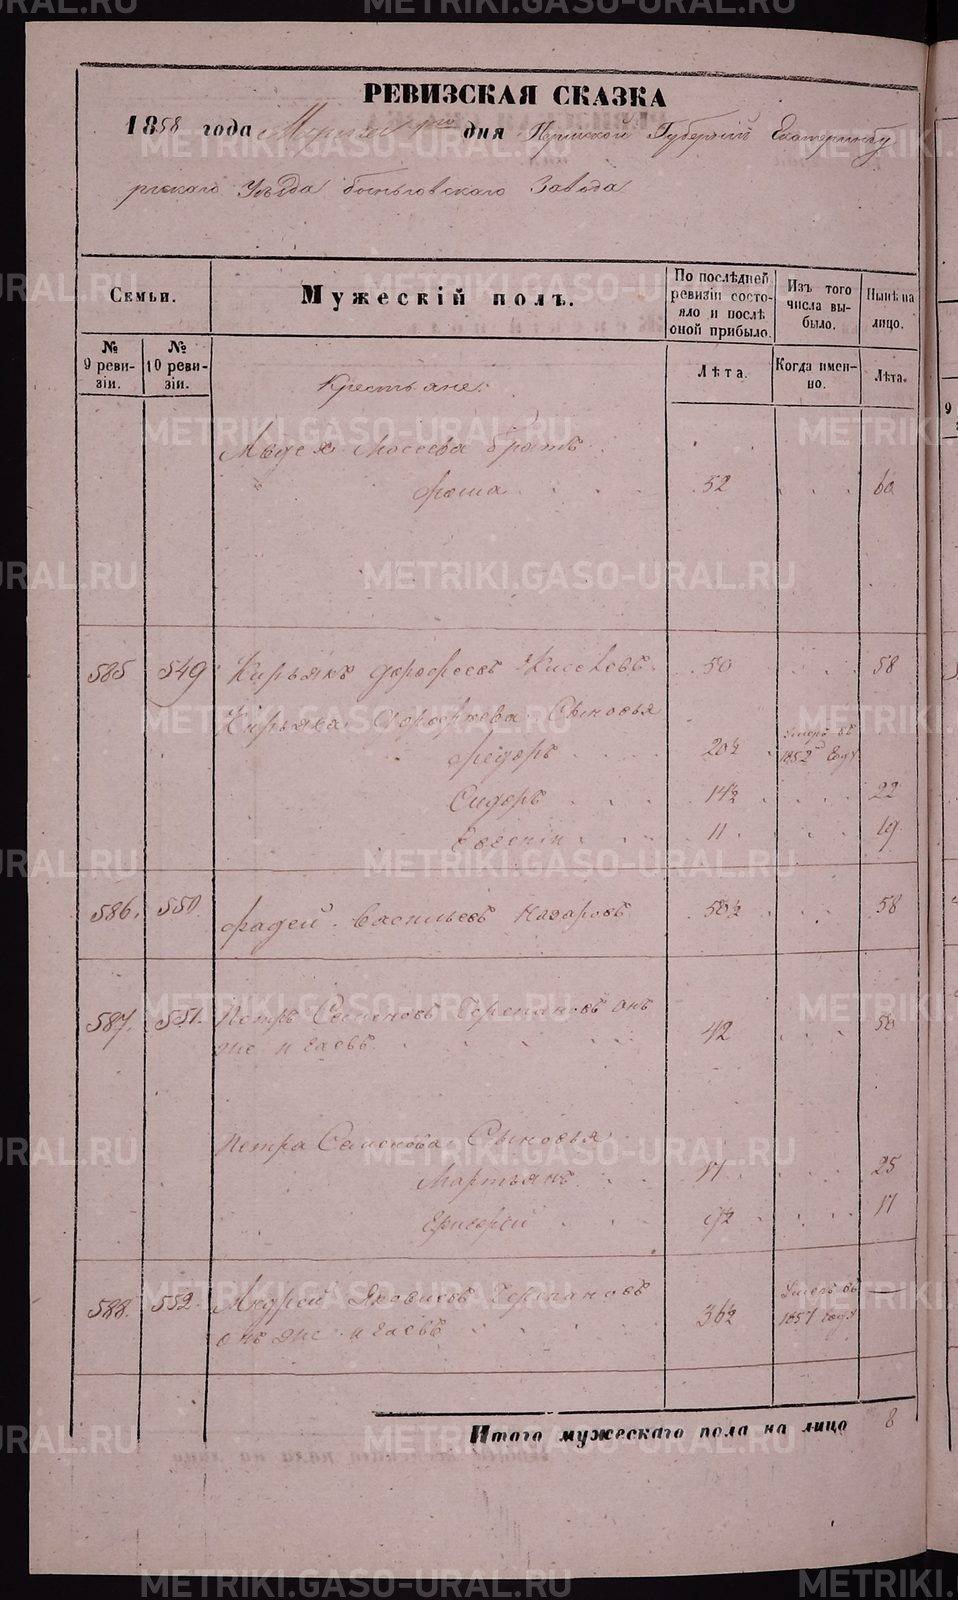 РЕВИЗСКАЯ СКАЗКА
1858 года Марта дня Пермской Губернии Екатеринбу
ргскаго Уѣзда Заво́да
Семьи.
Мужескій полъ.
По послѣдней ревизіи состояло и послѣ оной прибыло.
Изъ того числа выбыло.
Нынѣ на лицо.
№ 9 ревизіи.
№ 10 ревизіи.
Лѣта.
Когда именно.
Лѣта.
Крестьяне.
Мосеева братъ
Фома 52 60
585 549 Кирьякъ Дорофеевъ 50 58
Кирьяка Дорофеева Сыновья
Федоръ 20½ Умеръ въ 1852 Году
Сидоръ 14½ 22
Евгеній 11 19
586. 550. Фадей Васильевъ Назаровъ 50½ 58
587. 551. Петръ Семеновъ Черепановъ онъ 42 50
же и Гаевъ
Петра Семенова Сыновья
Мартьянъ 17 25
Григорій 9½ 17
588. 552. Андрей Яковлевъ Черепановъ 36½ Умеръ въ 1857 году —
онъ же и Гаевъ
Итого мужескаго пола на лицо 8
METRIKI.GASO-URAL.RU